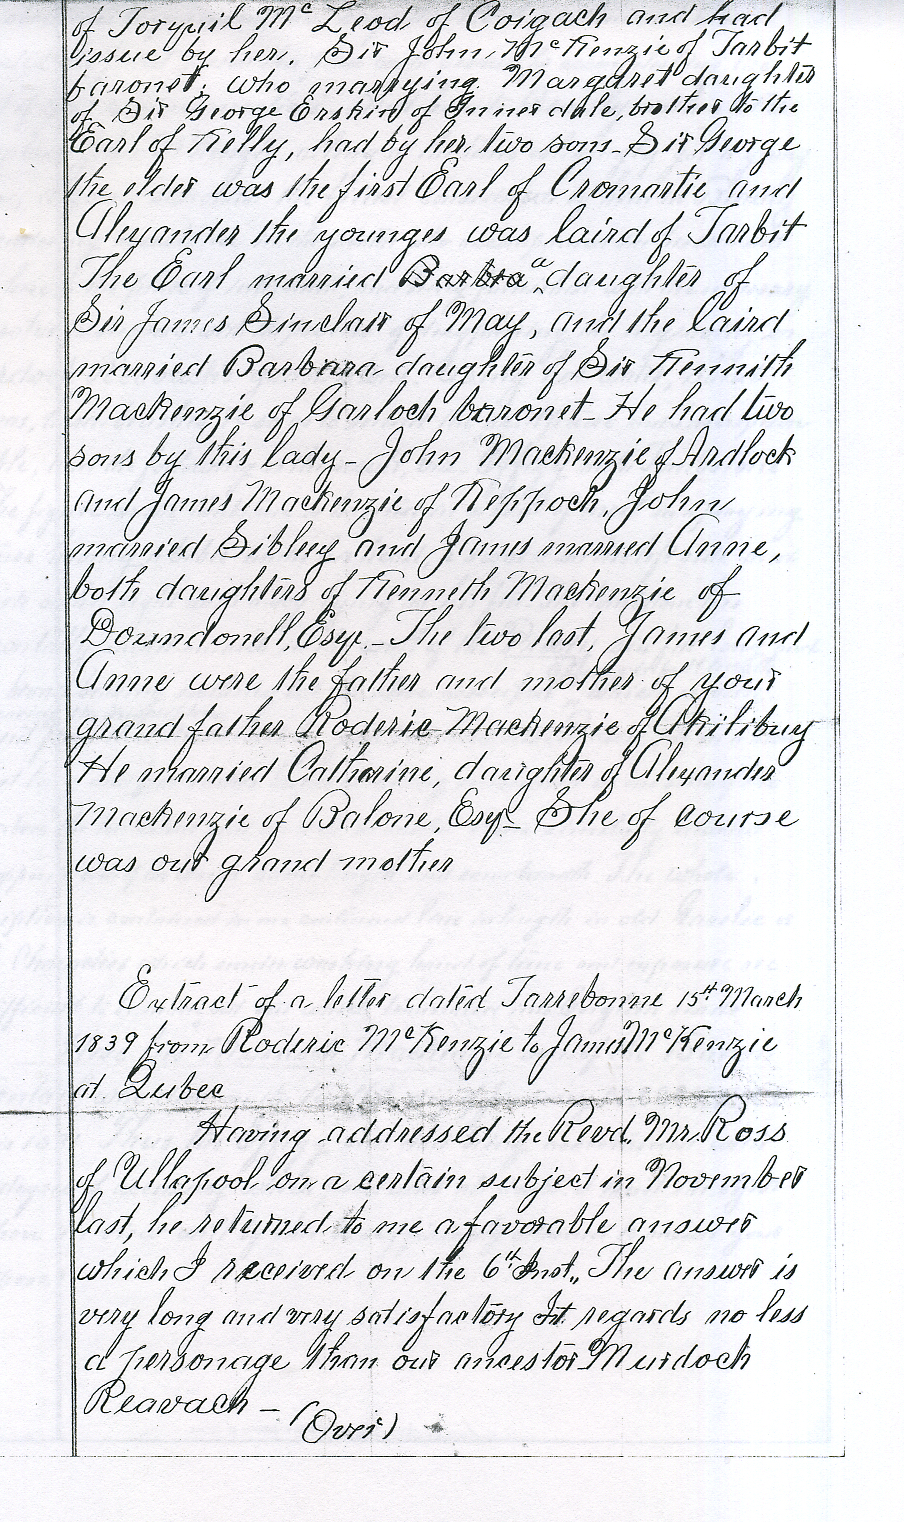 of Torquil Mc Leod of Coigach and had
issue by her, Sir John McKenzie of Tarbit
baronet; who marrying Margaret daughter
of Sir George Erskin of Innerdale, brother to the
Earl of Kelly, had by her, two sons - Sir George
the elder was the first Earl of Cromartie and
Alexander the younges was laird of Tarbit
The Earl married a daughter of
Sir James Sinclair of May, and the laird
married Barbara daughter of Sir Kennith
Mackenzie of Garloch baronet - He had two
sons by this lady - John Mackenzie of Ardlock
and James Mackenzie of Keppoch, John
married Sibley and James married Anne,
both daughters of Kenneth Mackenzie of
Doundonell, Esqr. - The two last, James and
Anne were the father and mother of your
grand father Roderic Mackenzie of Akilibuy
He married Catharine, daughter of Alexander
Mackenzie of Balone, Esqr - She of course
was our grand mother
Extract of a letter dated Tarrebonne 15th March
1839 from Roderic McKenzie to James McKenzie
at Qubec
Having addressed the Revd. Mr. Ross
of Ullapool on a certain subject in November
last, he returned to me a favorable answer
which I received on the 6th Inst,, The answer is
very long and very satisfactory It regards no less
a personage than our ancestor Murdoch
Reavach -
(Over)